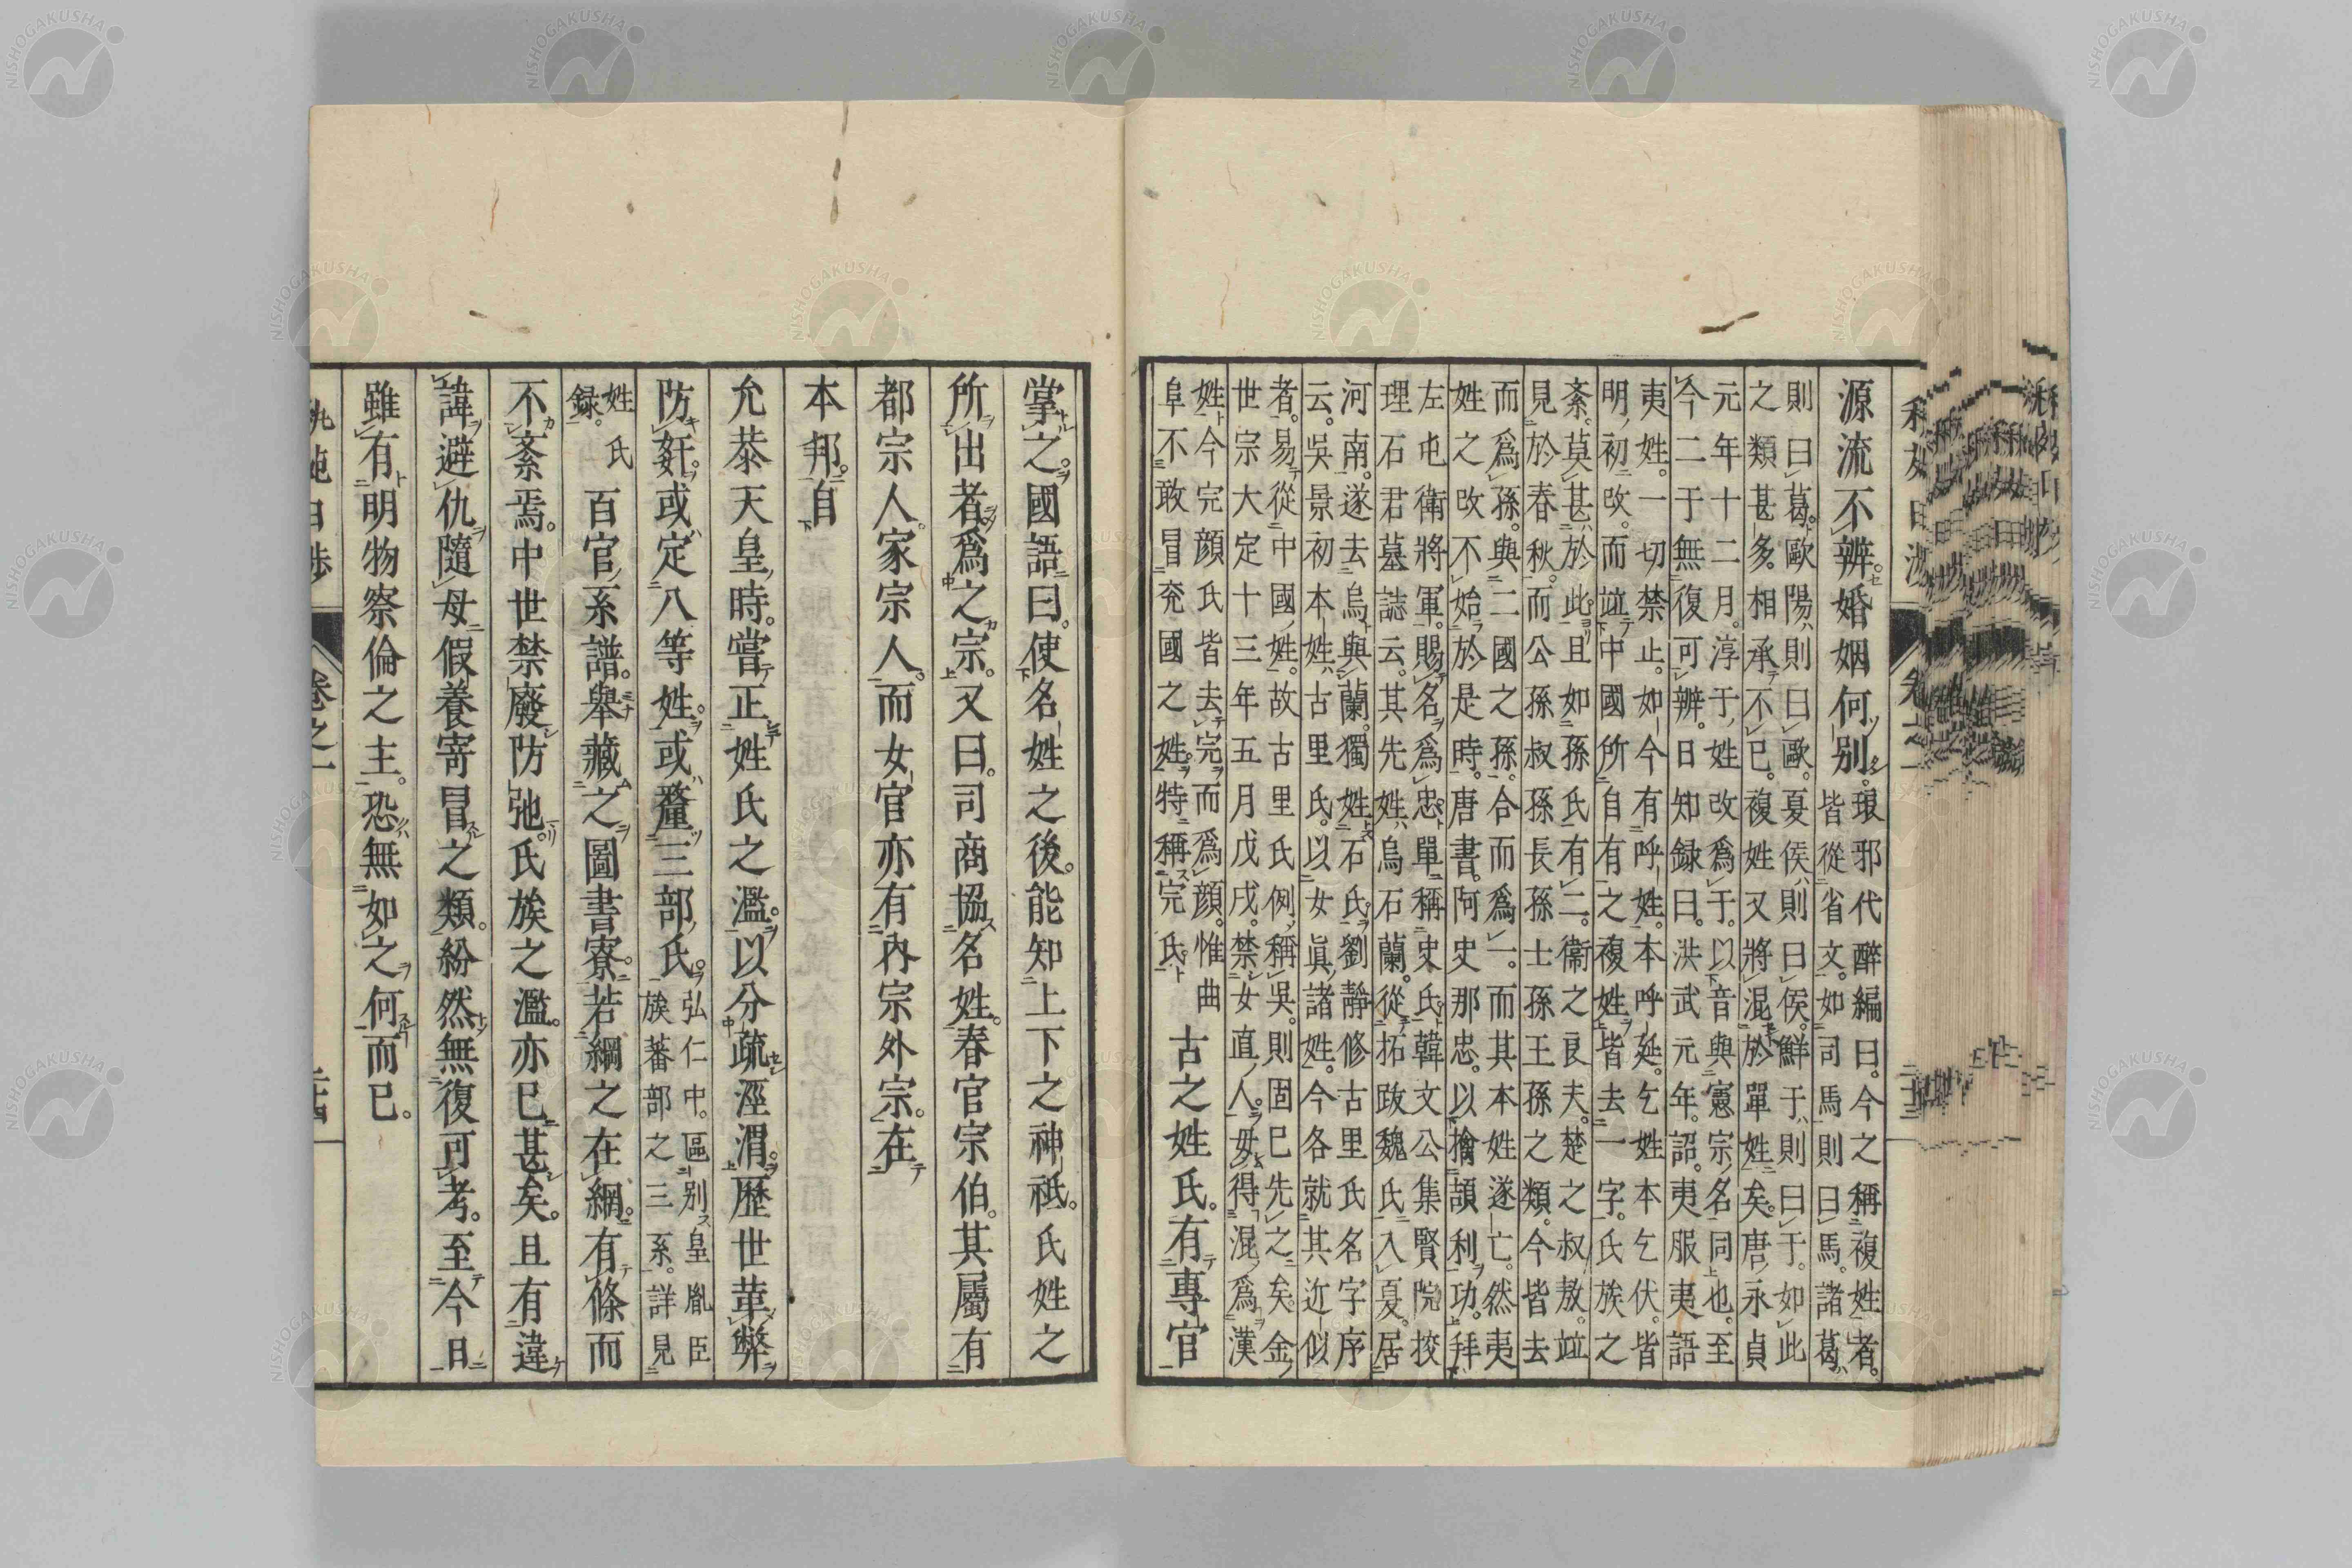 源流不辨婚姻何別。琅邪代醉編曰。今之稱複姓者。
皆從省文。如司馬則曰馬。諸葛
則曰葛。歐陽則曰歐。夏侯則曰侯。鮮于則曰于。如此
之類甚多。相承不已。複姓又將混於單姓矣。唐永貞
元年十二月。淳于姓改爲于。以音與憲宗名同也。至
今二于無復可辨。日知録曰。洪武元年。詔。夷服夷語
夷姓。一切禁止。如今有呼姓。本呼延。乞姓本乞伏。皆
明初改。而竝中國所自有之複姓。皆去一字。氏族之
紊。莫甚於此。且如孫氏有二。衞之良夫。楚之叔敖。竝
見於春秋。而公孫叔孫長孫士孫王孫之類。今皆去
而爲孫。與二國之孫。合而爲一。而其本姓遂亡。然夷
姓之改不始於是時。唐書。阿史那忠。以擒頡利功。拜
左屯衛將軍。賜名爲忠。單稱史氏。韓文公集賢院挍
理石君墓誌云。其先姓烏石蘭。從拓跋魏氏入夏。居
河南。遂去烏與蘭。獨姓石氏。劉靜修古里氏名字序
云。吳景初本姓古里氏。以女眞諸姓。今各就其近似
者。易從中國姓。故古里氏例稱吳。則固已先之矣。金
世宗大定十三年五月戊戌。禁女直人。毋得混爲漢
姓。今完顔氏皆去完而爲顔。惟曲
阜不敢冒兖國之姓。特稱完氏
古之姓氏。有專官
掌之。國語曰。使名姓之後。能知上下之神祇。氏姓之
所出者。爲之宗。又曰。司商協名姓。春官宗伯。其屬有
都宗人。家宗人。而女官亦有內宗外宗。在
本邦。自
允恭天皇時。嘗正姓氏之濫。以分疏涇渭。歷世革弊
防奸。或定八等姓。或釐三部氏。弘仁中。區別皇胤臣
族蕃部之三系。詳見
姓氏
録。
百官系譜。舉藏之圖書寮。若綱之在網。有條而
不紊焉。中世禁廢防弛。氏族之濫。亦已甚矣。且有違
諱避仇。隨母假養寄冒之類。紛然無復可考。至今日
雖有明物察倫之主。恐無如之何而已。
卷之一